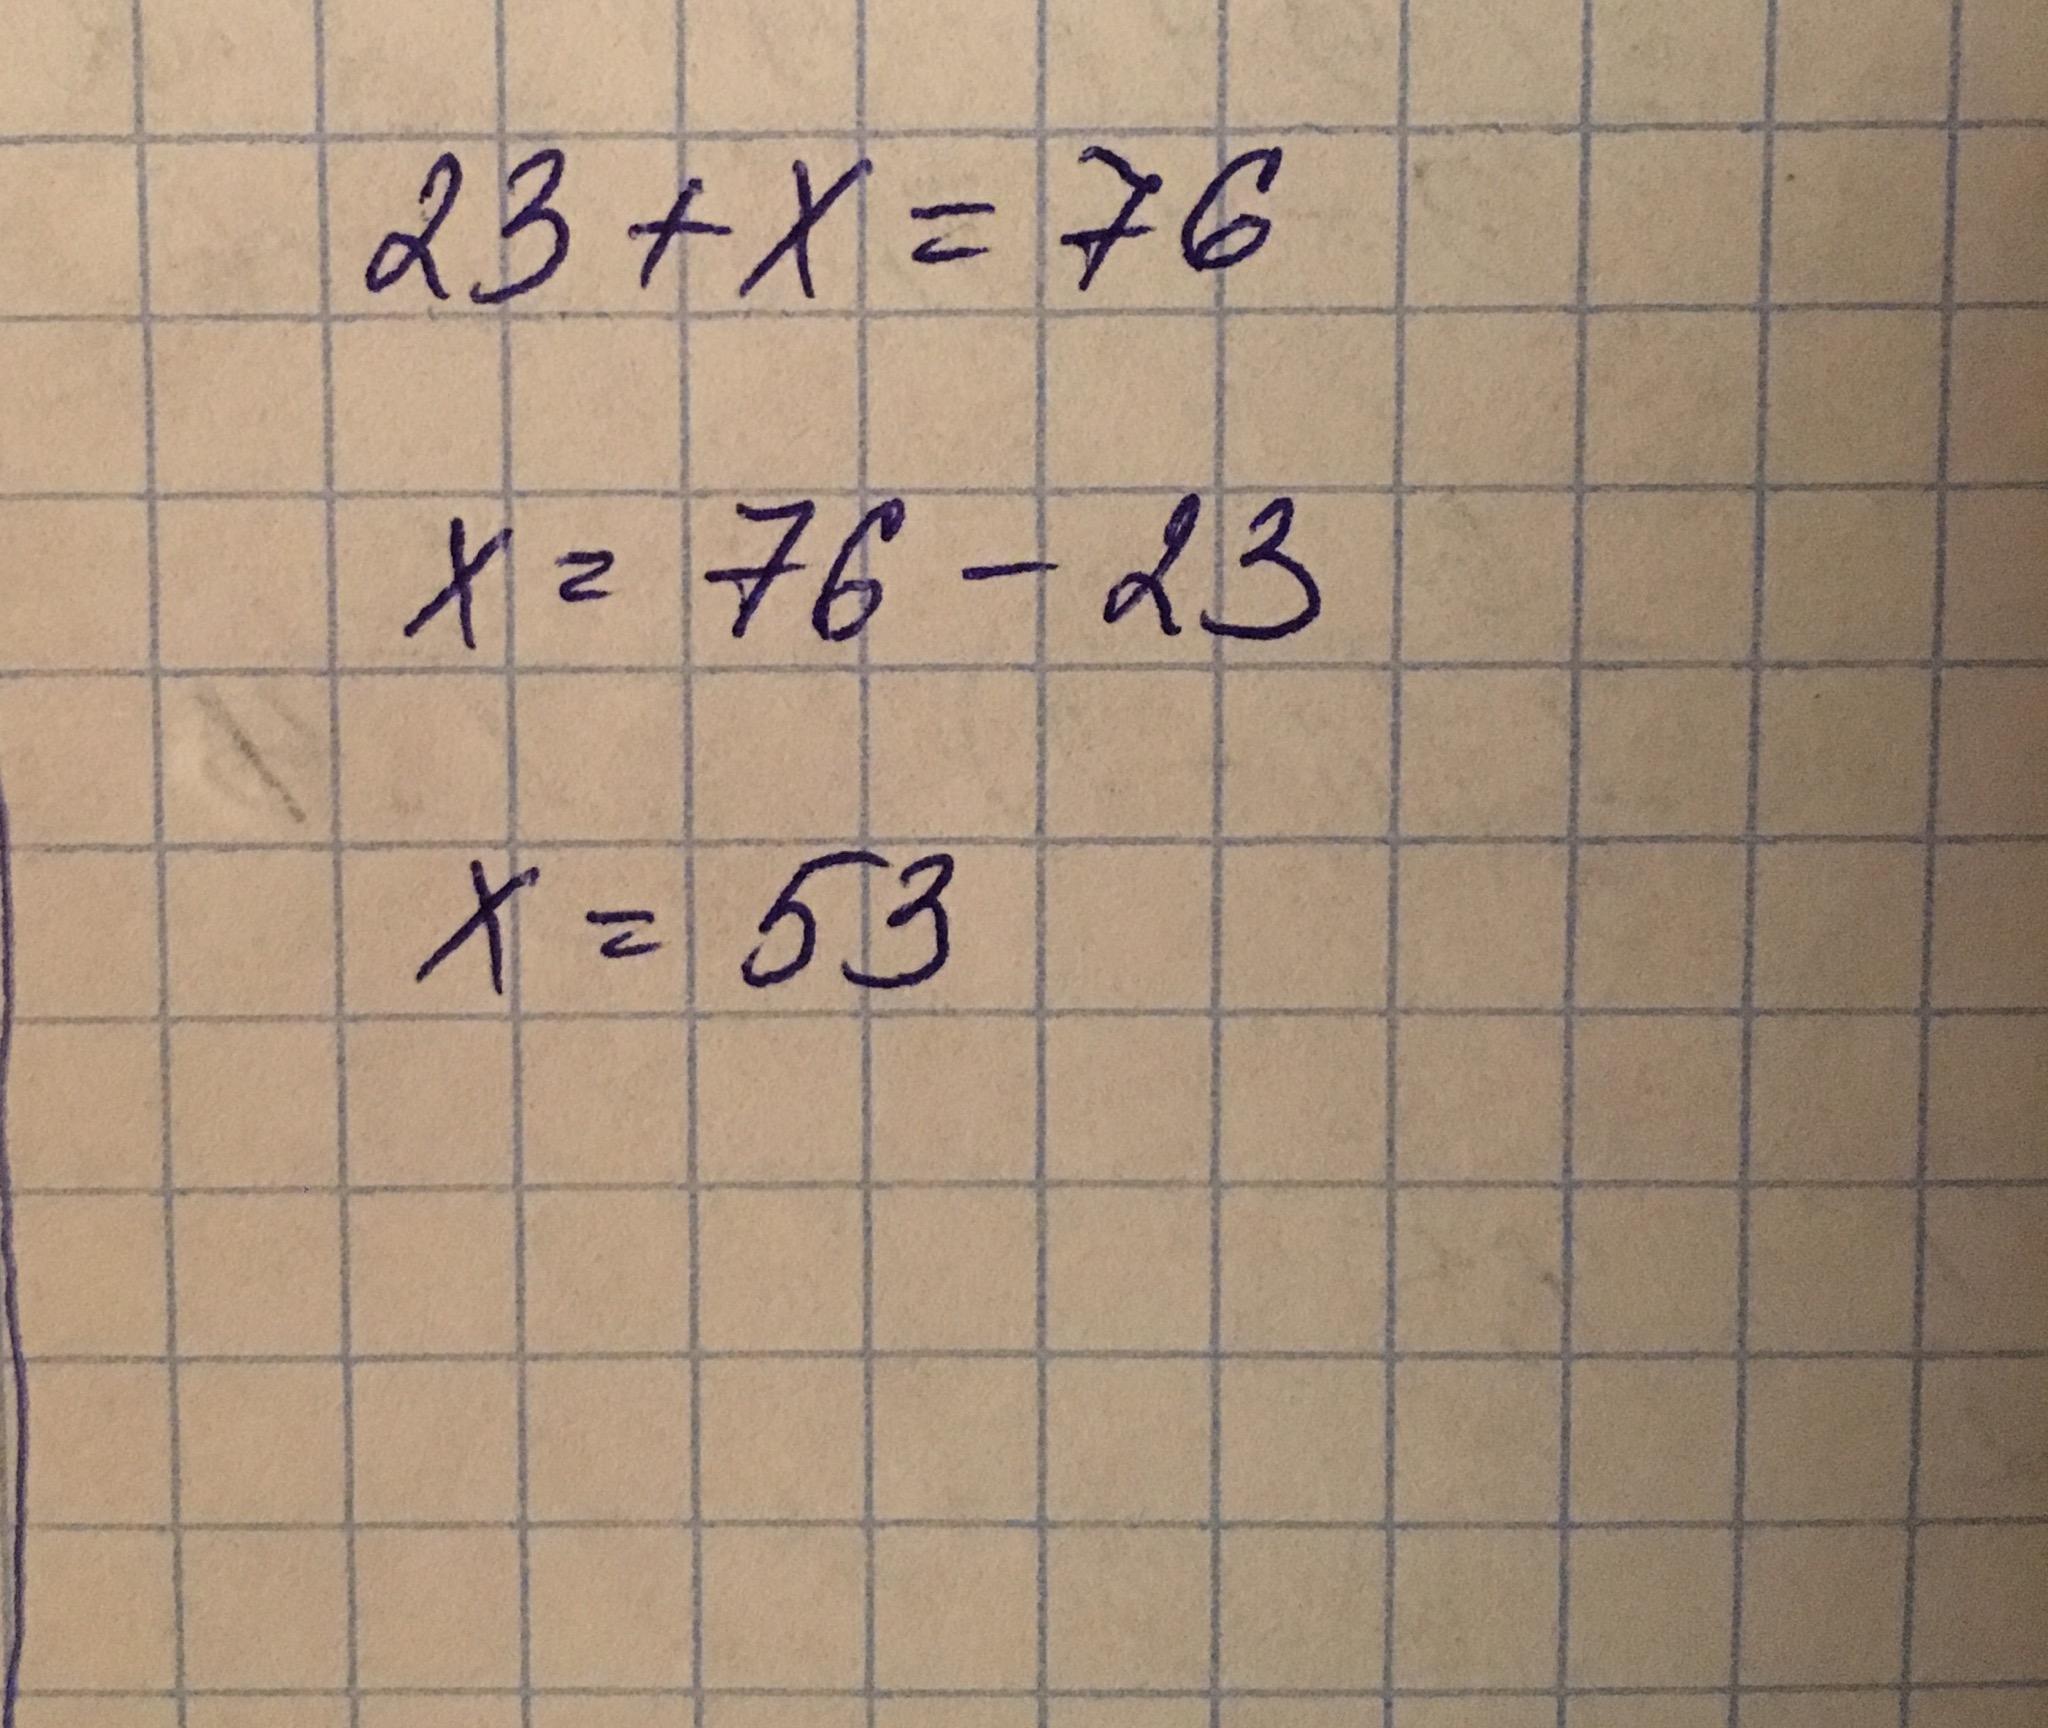 23 + x = 76
x = 76 - 23
x = 53